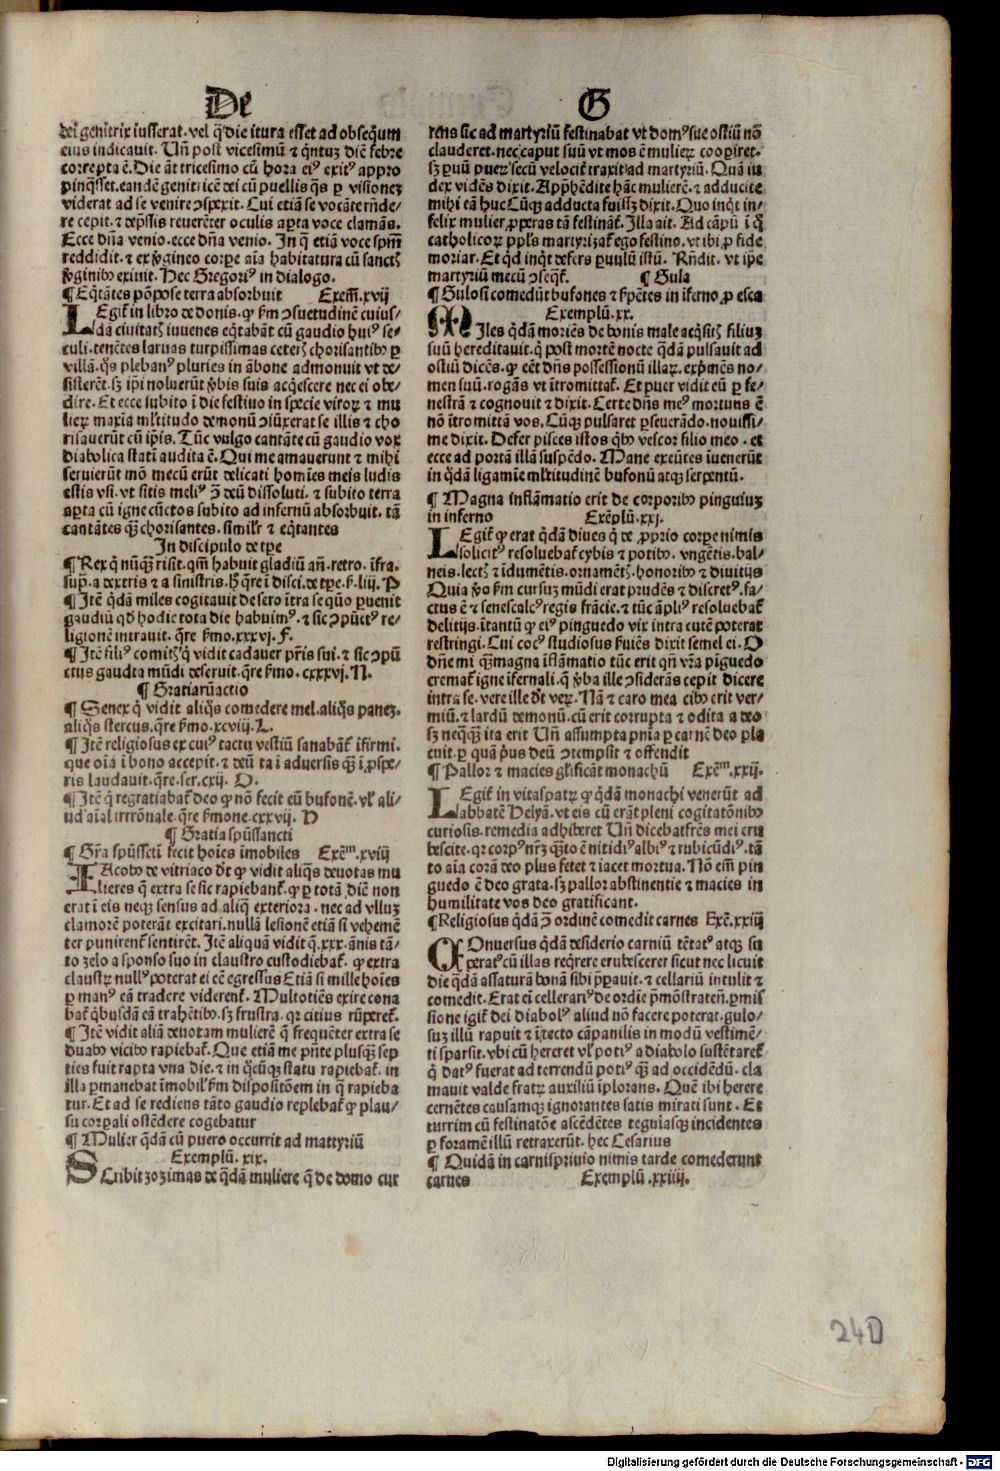 De
G
dei genitrix iusserat. vel q̄ die itura esset ad obsequm̄
eius indicauit. Un̄ post vicesimū ⁊ q̄ntuz diē febre
correpta ē. Die āt tricesimo cū hora eiꝰ exitꝰ appro
pinq̄sset. eandē genitricē dei cū puellis q̄s p visionez
viderat ad se venire ↄspexit. Cui etiā se vocāte rn̄de⸗
re cepit. ⁊ dep̄ssis reuerēter oculis aꝑta voce clamās.
Ecce dn̄a venio. ecce dn̄a venio. In q̄ etiā voce spm̄
reddidit. ⁊ ex v̓gineo corpe aīa habitatura cū sanctꝭ
v̓ginibꝰ exiuit. Hec Gregoriꝰ in dialogo.
¶ Eq̄tātes pōpose terra absorbuit Exem̄. xvij
LEgit̄ in libro de donis. ꝙ s̄m ↄsuetudinē cuius⸗
dā ciuitatꝭ iuuenes eq̄tabāt cū gaudio huiꝰ se⸗
culi. tenētes laruas turpissimas ceterꝭ chorisantibꝰ ꝑ
villā. q̄s plebanꝰ pluries in ābone admonuit vt de⸗
sisterēt. sꝫ ip̄i noluerūt v̓bis suis acq̄escere nec ei obe⸗
dire. Et ecce subito ī die festiuo in specie viroꝝ ⁊ mu
lieꝝ maxīa ml̓titudo demonū ↄiūxerat se illis ⁊ cho
risauerūt cū ip̄is. Tūc vulgo cantāte cū gaudio vox
diabolica statī audita ē. Qui me amauerunt ⁊ mihi
seruierūt mō mecū erūt delicati homīes meis ludis
estis vsi. vt sitis meliꝰ ↄ̄ deū dissoluti. ⁊ subito terra
aꝑta cū igne cūctos subito ad infernū absorbuit. tā
cantātes q̄ꝫ chorisantes. simil̓r ⁊ eq̄tantes
In discipulo de tp̄e
¶ Rex q̄ nūq̄ꝫ risit. qm̄ habuit gladiū an̄. retro. īfra.
sup̄. a dextris ⁊ a sinistris. h̄ q̄re ī disci. de tp̄e. s̄. liij. P
¶ Itē q̄dā miles cogitauit de sero ītra se q̄uo puenit
gaudiū qd̄ hodie tota die habuimꝰ. ⁊ sic ↄpūctꝰ re⸗
ligionē intrauit. q̄re s̄mo. xxxvj. F.
¶ Itē filiꝰ comitꝭ q̄ vidit cadauer pr̄is sui. ⁊ sic ↄpū
ctus gaudia mūdi deseruit. q̄re s̄mo. cxxxvj. N.
¶ Gratiarū actio
¶ Senex q̄ vidit aliq̄s comedere mel. aliq̄s panez.
aliq̄s stercus. q̄re s̄mo. xcviij. L.
¶ Itē religiosus ex cuiꝰ tactu vestiū sanabāt̄ īfirmi.
que oīa ī bono accepit. ⁊ deū tā ī aduersis q̄ꝫ ī ꝓspe⸗
ris laudauit. q̄re. ser. cxij. O.
¶ Itē q̄ regratiabat̄ deo ꝙ nō fecit eū bufonē. vl̓ ali⸗
ud aīal irrrōnale. q̄re s̄mone. cxxvij. H
¶ Gratia spūssancti
¶ Gr̄a spūsscti fecit hoīes īmobiles Exēm. xviij
IAcobꝰ de vitriaco dt̄ ꝙ vidit aliq̄s deuotas mu
lieres q̄ extra se sic rapiebant̄. ꝙ ꝑ totā diē non
erat ī eis neqꝫ sensus ad aliq̄ exteriora. nec ad vlluꝫ
clamorē poterāt excitari. nullā lesionē etiā si vehemē
ter punirent̄ sentirēt. Itē aliquā vidit q̄. xxx. ānis tā⸗
to zelo a sponso suo in claustro custodiebat̄. ꝙ extra
claustꝝ nullꝰ poterat ei eē egressus Etiā si mille hoīes
ꝑ manꝰ eā tradere viderent̄. Multotiēs exire cona
bat̄ q̄busdā eā trahētibꝰ. sꝫ frustra. qꝛ citius rūperet̄.
¶ Itē vidit aliā deuotam mulierē q̄ frequēter extra se
duabꝰ vicibꝰ rapiebat̄. Que etiā me pn̄te plusq̄ꝫ sep
ties fuit rapta vna die. ⁊ in q̄cūqꝫ statu rapiebat̄. in
illa ꝑmanebat īmobil̓ s̄m dispositōem in q̄ rapieba
tur. Et ad se rediens tāto gaudio replebat̄ ꝙ plau⸗
su corꝑali ostēdere cogebatur
¶ Mulier q̄dā cū puero occurrit ad mattyriū
Exemplū. xix.
SCribit zozimas de q̄dā muliere q̄ de domo cur
rens sic ad martyriū festinabat vt domꝰ sue ostiū nō
clauderet. nec caput suū vt mos ē mulieꝝ cooꝑiret.
sꝫ ꝑuū pueꝝ secū velocit̄ traxit ad martyriū. Quā iu
dex vidēs dixit. App̄hēdite hāc mulierē. ⁊ adducite
mihi eā huc Cūqꝫ adducta fuissꝫ dixit. Quo inq̄t in⸗
felix mulier ꝓperas tā festināt̄. Illa ait. Ad cāpū ī q̄
catholicoꝝ ppl̓s martyrizat̄ ego festino. vt ibi ꝓ fide
moriar. Et qd̄ inq̄t defers ꝑuulū istū. Rn̄dit. vt ip̄e
martyriū mecū ↄseq̄t̄. ¶ Gula
¶ Gulosi comedūt bufones ⁊ s̄pētes in īferno ꝓ esca
Exemplū. xx.
MIles q̄dā moriēs de bonis male acq̄sitꝭ filiuꝫ
suū hereditauit. q̄ post mortē nocte q̄dā pulsauit ad
ostiū dicēs. ꝙ eēt dn̄s possessionū illaꝝ. exp̄mēs no⸗
men suū. rogās vt ītromittat̄. Et puer vidit eū ꝑ fe⸗
nestrā ⁊ cognouit ⁊ dixit. Certe dn̄s meꝰ mortuus ē
nō ītromittā vos. Cūqꝫ pulsaret ꝑseuerādo. nouissi⸗
me dixit. Defer pisces istos q̄bꝰ vescor filio meo. et
ecce ad portā illā suspēdo. Mane exeūtes īuenerūt
in q̄dā ligamīe ml̓titudinē bufonū atqꝫ serpentū.
¶ Magna inflāmatio erit de corporibꝰ pinguiuꝫ
in inferno Exēplū. xxj.
LEgit̄ ꝙ erat q̄dā diues q̄ de ꝓprio corꝑe nimis
solicitꝰ resoluebat̄ cybis ⁊ potibꝰ. vngētis. bal⸗
neis. lectꝭ ⁊ īdumētis. ornamētꝭ. honoribꝰ ⁊ diuitijs
Quia v̓o s̄m cursuꝫ mūdi erat prudēs ⁊ discretꝰ. fa⸗
ctus ē ⁊ senescalcꝰ regis frācie. ⁊ tūc āpliꝰ resoluebat̄
delitijs. ītantū ꝙ eiꝰ pinguedo vix intra cutē poterat
restringi. Cui cocꝰ studiosus s̄uiēs dixit semel ei. O
dn̄e mi q̄ꝫ magna īflāmatio tūc erit qn̄ vr̄a pīguedo
cremat̄ igne īfernali. q̄ v̓ba ille ↄsiderās cepit dicere
intra se. vere ille dt̄ veꝝ. Nā ⁊ caro mea cibꝰ erit ver⸗
miū. ⁊ lardū demonū. cū erit corrupta ⁊ odita a deo
sꝫ neq̄q̄ꝫ ita erit Un̄ assumpta pn̄ia ꝑ carnē deo pla
cuit. ꝑ quā p̄us deū ↄtempsit ⁊ offendit
¶ Pallor ⁊ macies gl̓ificāt monachū Exēm. xxij.
LEgit̄ in vitaspatꝝ ꝙ q̄dā monachi venerūt ad
abbatē Helyā. vt eis cū erāt pleni cogitatōnibꝰ
curiosis. remedia adhiberet Un̄ dicebat frēs mei eru
bescite. qꝛ corpꝰ nr̄ꝫ q̄ꝫto ē nitidiꝰ albiꝰ ⁊ rubicūdiꝰ. tā
to aīa corā deo plus fetet ⁊ iacet mortua. Nō em̄ pin
guedo ē deo grata. sꝫ pallor abstinentie ⁊ macies in
humilitate vos deo gratificant.
¶ Religiosus q̄dā ↄ̄ ordinē comedit carnes Exē. xxiij
COnuersus q̄dā desiderio carniū tētatꝰ atqꝫ su
peratꝰ cū illas req̄rere erubesceret sicut nec licuit
die q̄dā assaturā bonā sibi p̄ꝑauit. ⁊ cellariū intulit ⁊
comedit. Erat ei cellerariꝰ de ordīe p̄mōstraten̄. ꝑmis
sione igit̄ dei diabolꝰ aliud nō facere poterat. gulo⸗
suꝫ illū rapuit ⁊ ī tecto cāpanilis in modū vestimē⸗
ti sparsit. vbi cū hereret vl̓ potiꝰ a diabolo sustētaret̄
q̄ datꝰ fuerat ad terrendū potiꝰ q̄ꝫ ad occidēdū. cla
mauit valde fratꝝ auxiliū īplorans. Quē ibi herere
cernētes causamqꝫ ignorantes satis mirati sunt. Et
turrim cū festinatōe ascēdētes tegulasqꝫ incidentes
ꝑ foramē illū retraxerūt. hec Cesarius
¶ Quidā in carnispriuio nimis tarde comederunt
carnes Exemplū. xxiiij.
240
Digitalisierung gefördert durch die Deutsche Forschungsgemeinschaft - DFG